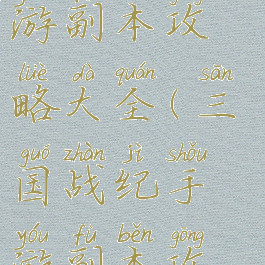 游副本攻
lüè dà quán sān
略大全(三
guó zhàn jì shǒu
国战纪手
yóu fù běn gōng
游副本攻